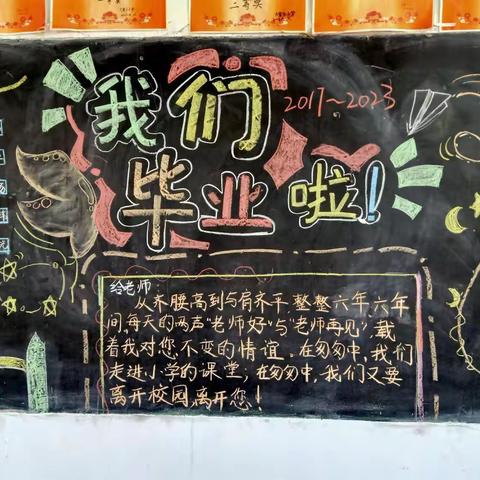 二等奖
我们
2017~2023
毕业啦!
给老师:
从齐腰高到与肩齐平,整整六年,六年
间,每天的两声"老师好"与"老师再见",载
着我对您不变的情谊。在匆匆中,我们
走进小学的课堂;在匆匆中,我们又要
离开校园,离开您!